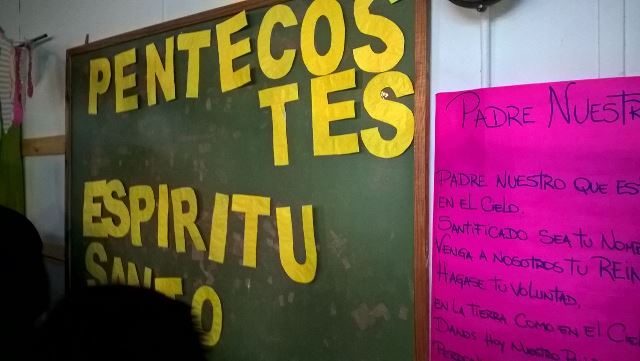 PENTECOS
TES
ESPIRITU
SANTO
PADRE NUESTR
PADRE NUESTRO QUE ES
EN EL CIELO.
SANTIFICADO SEA TU NOM
VENGA A NOSOTROS TU REIN
HAGASE TU VOLUNTAD,
EN LA TIERRA COMO EN EL CIE
DANOS HOY NUESTRO